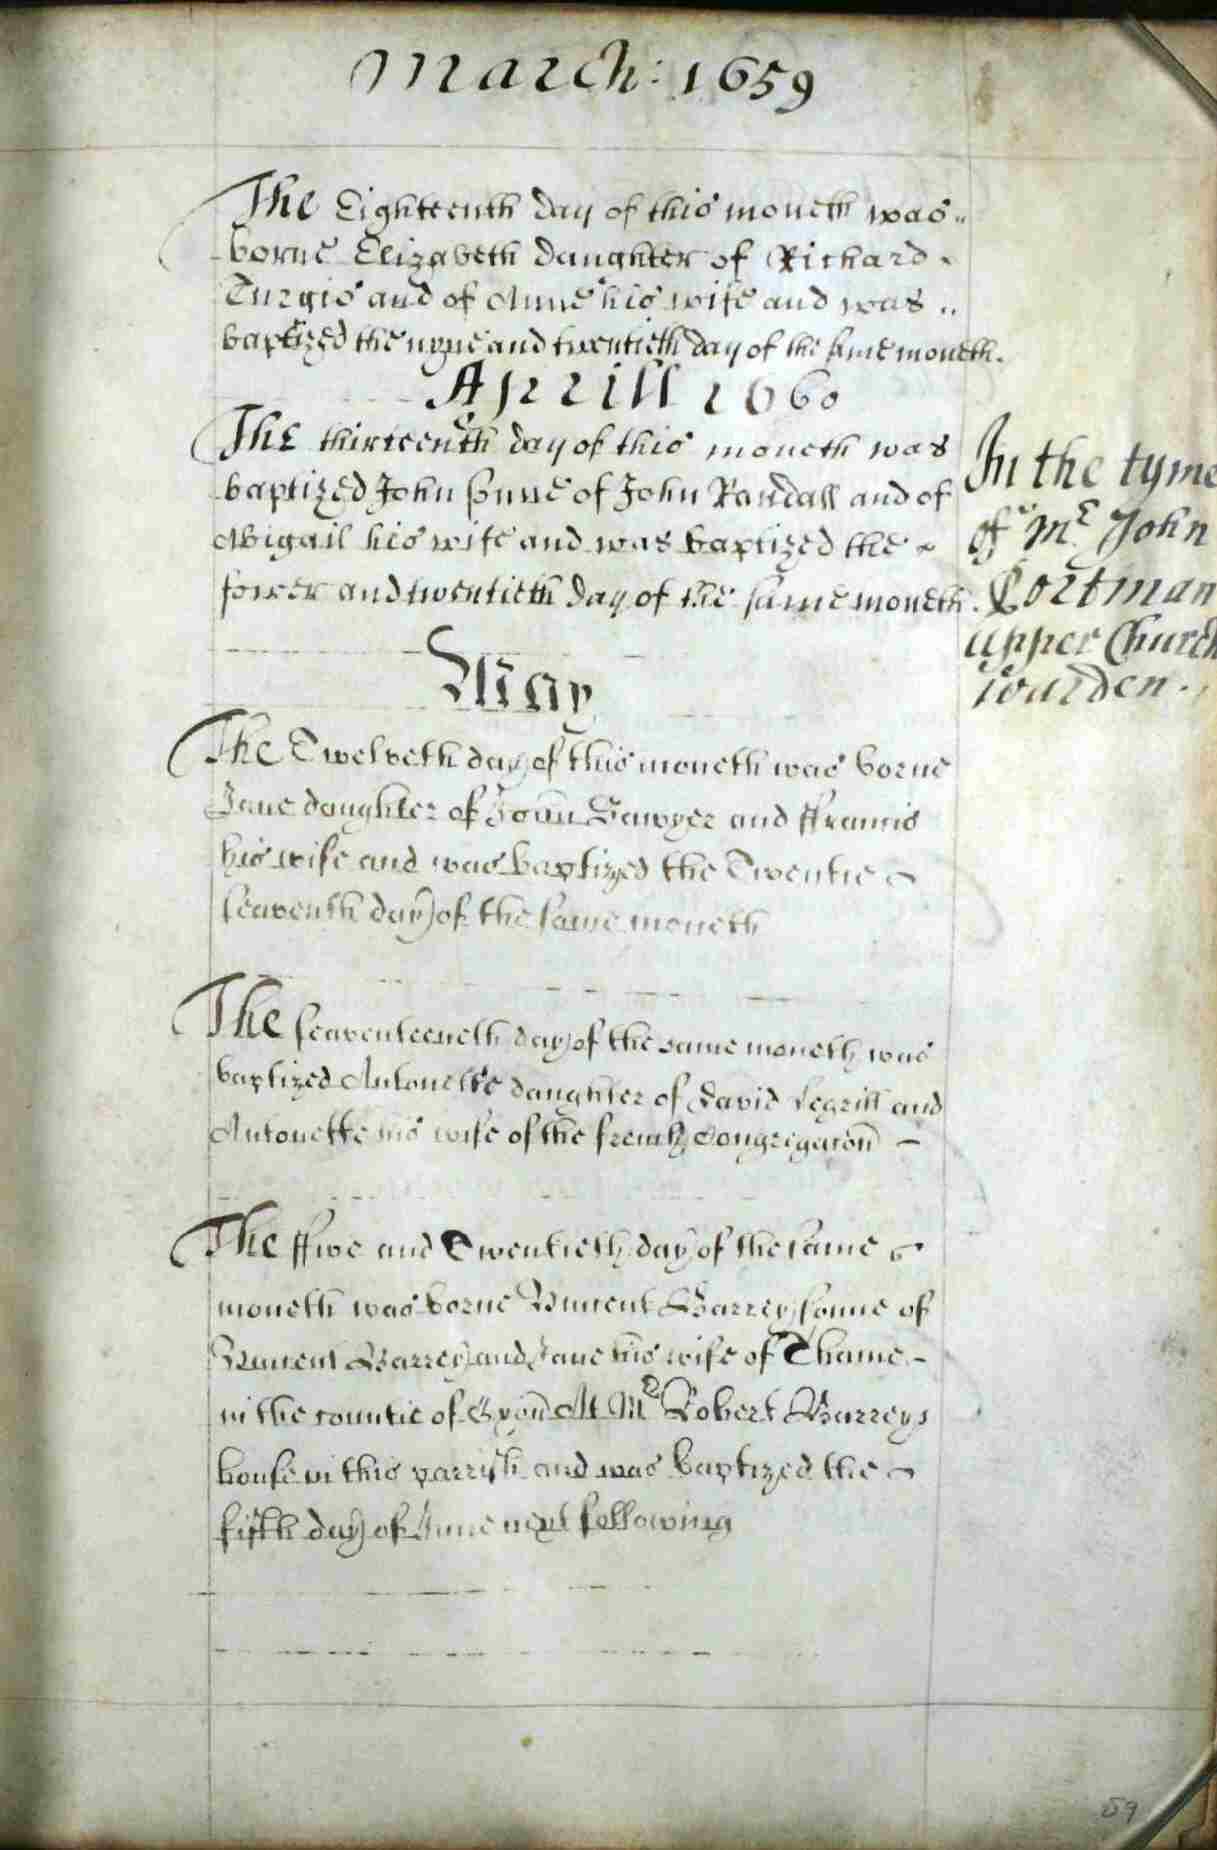 March: 1659
The Eighteenth day of this moneth was
borne Elizabeth daughter of Richard
Turgis and of Anne his wife and was
baptized the nyne and twentieth day of the same moneth.
Aprill 1660
The thirteenth day of this moneth was
baptized John sonne of John Randall and of
Abigail his wife and was baptized the
fower and twentieth day of the same moneth.
In the tyme
of Mr John
Portman
upper Church
warden.
May
The Twelveth day of this moneth was borne
Jane daughter of John Sawyer and ffrancis
his wife and was baptized the Twentie
seaventh day of the same moneth
The seaventeenth day of the same moneth was
baptized Antonette daughter of David Legrill and
Antonette his wife of the french Congregacon
The ffive and Twentieth day of the same
moneth was borne Vincent Barrey sonne of
Vincent Barrey and Jane his wife of Thame
in the countie of Oxon At Mr Robert Barreys
house in this parrish and was baptized the
fifth day of June next following
59